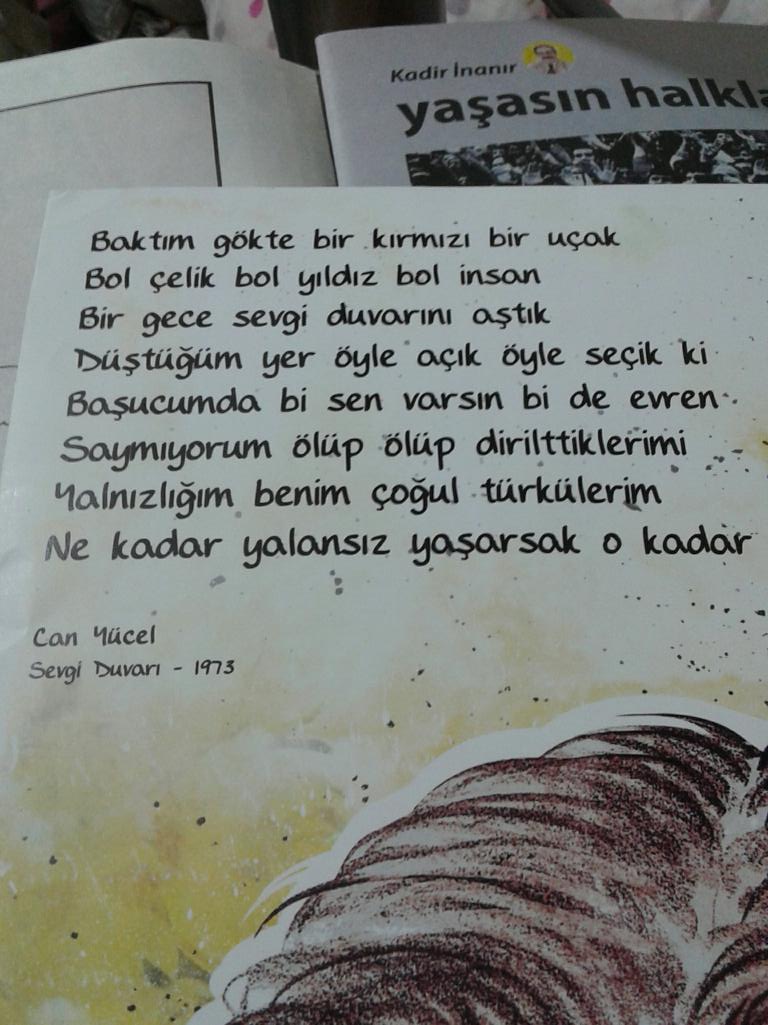 Kadir İnanır
yaşasın halkla
Baktım gökte bir kırmızı bir uçak
Bol çelik bol yıldız bol insan
Bir gece sevgi duvarını aştık
Düştüğüm yer öyle açık öyle seçik ki
Başucumda bi sen varsın bi de evren
Saymıyorum ölüp ölüp dirilttiklerimi
Yalnızlığım benim çoğul türkülerim
Ne kadar yalansız yaşarsak o kadar
Can Yücel
Sevgi Duvarı - 1973